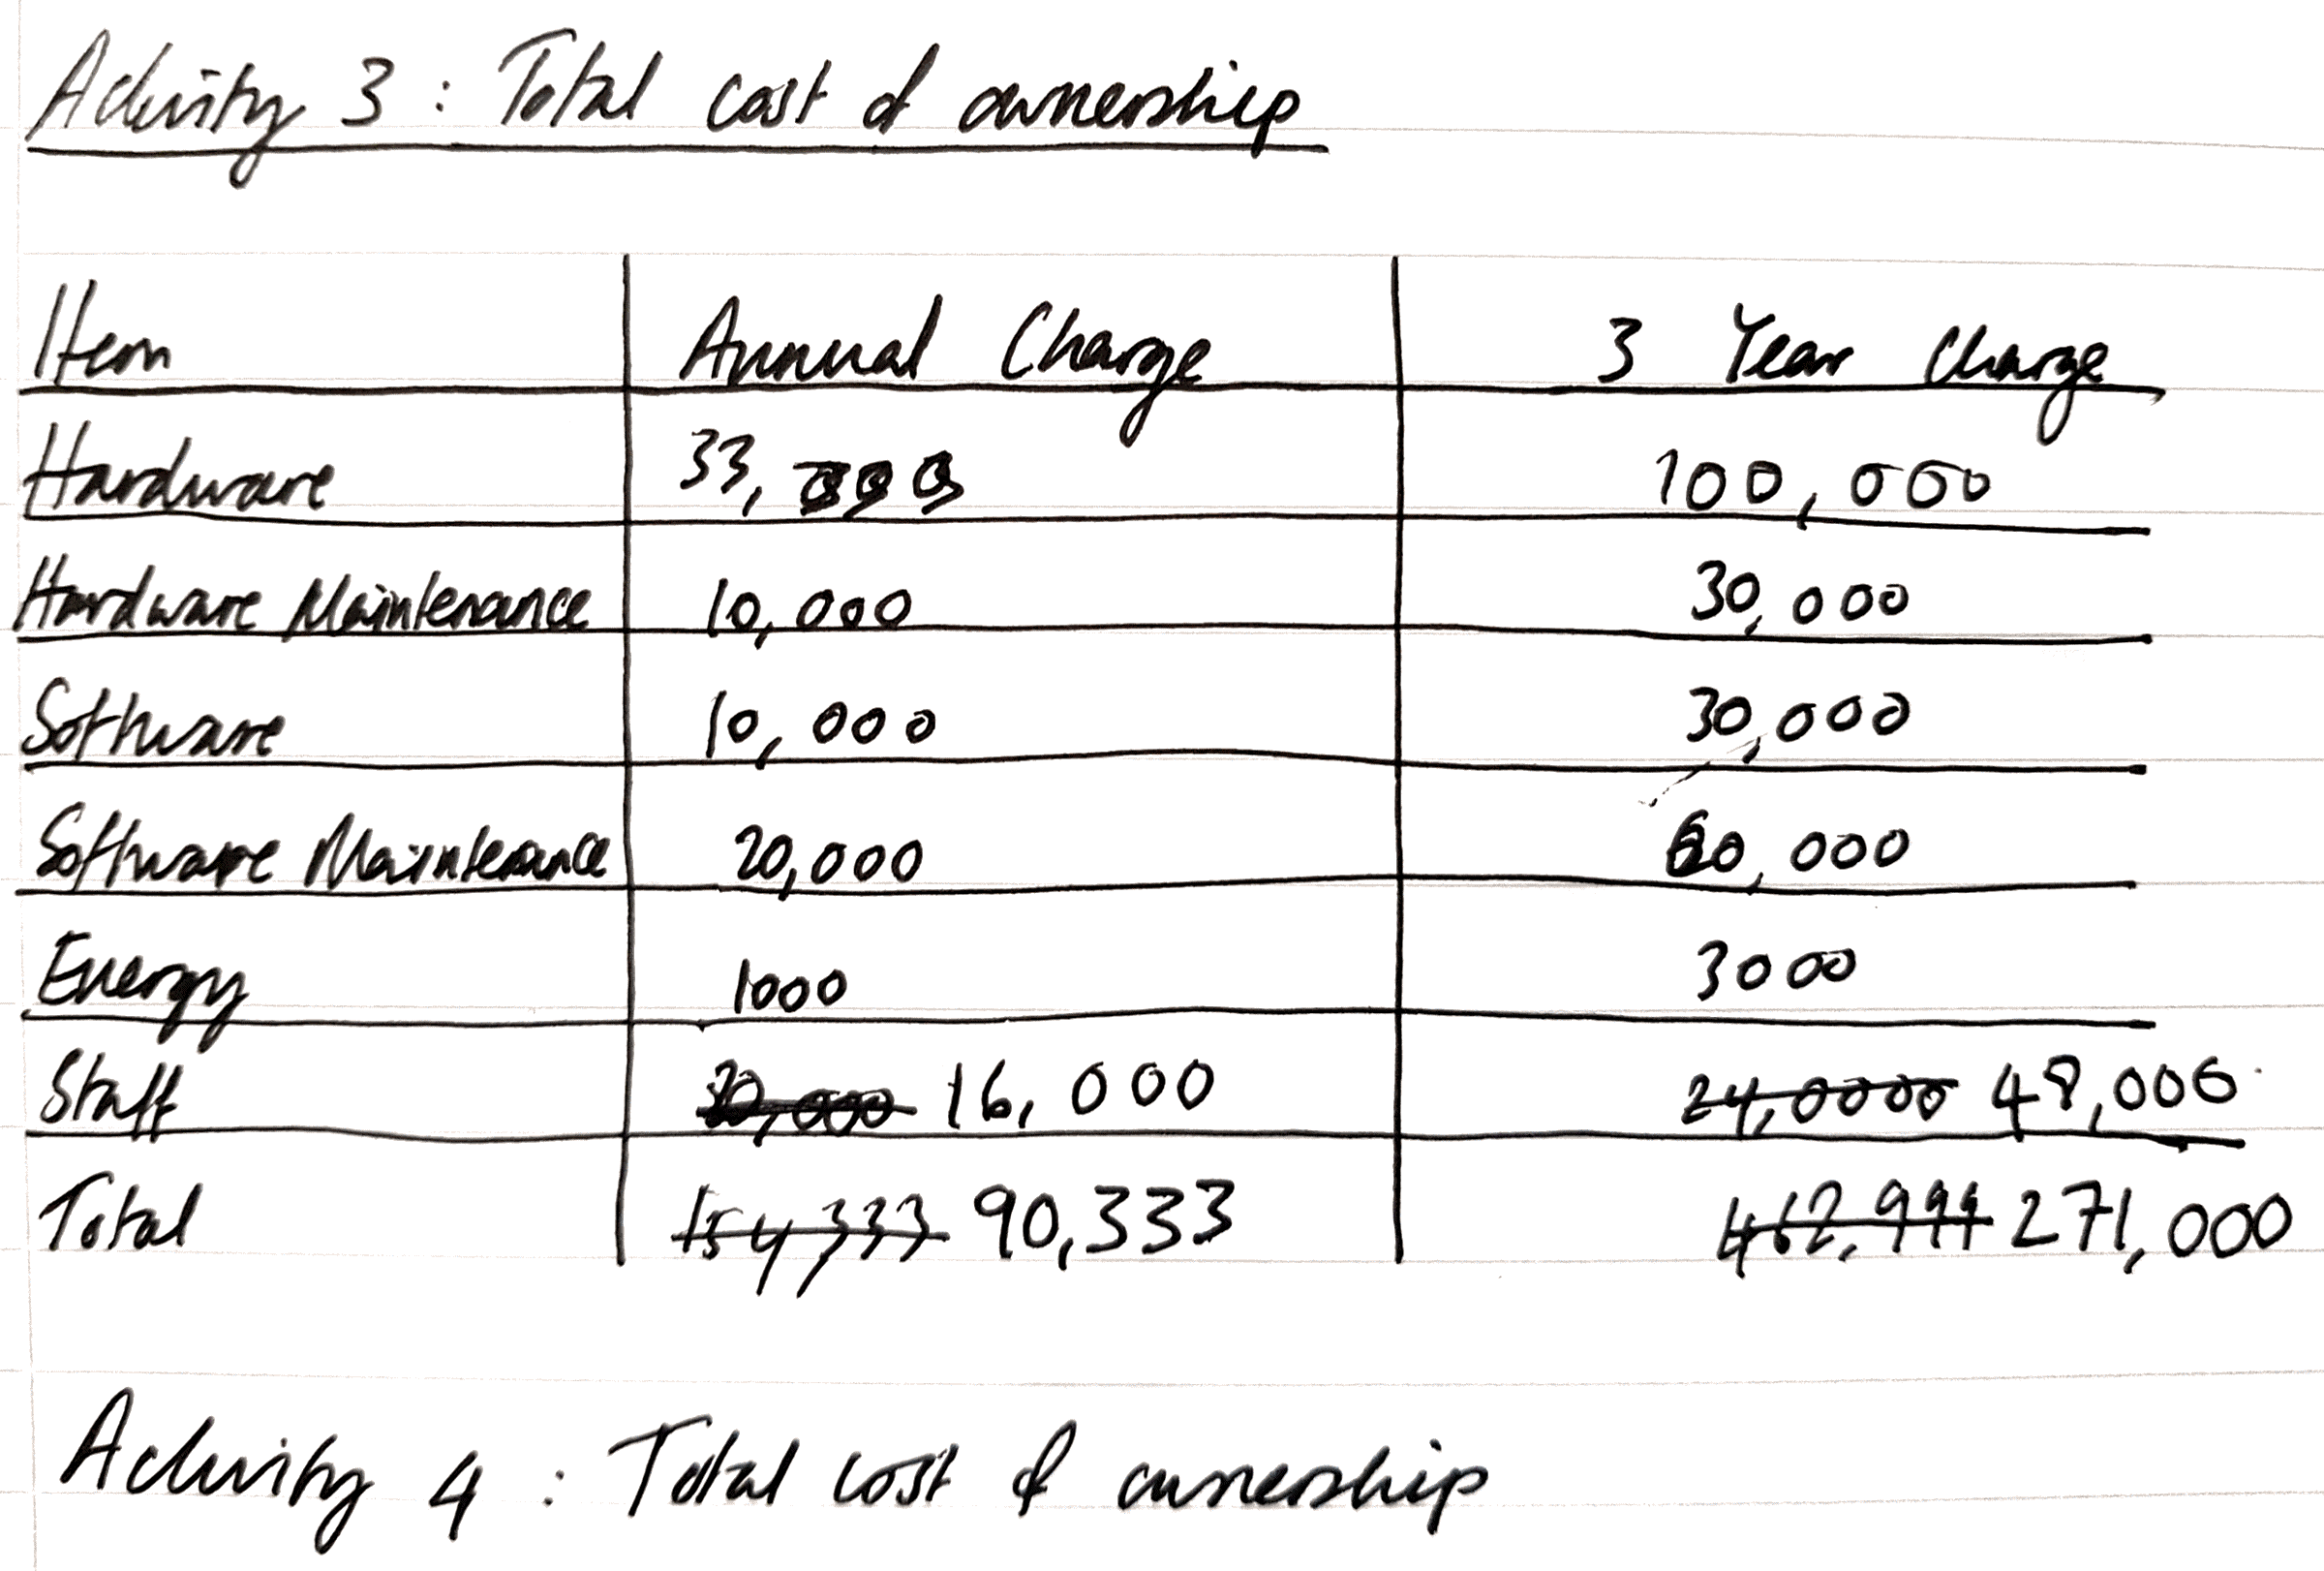 Activity 3 : Total cost of ownership
Item Annual Charge 3 Year Charge
Hardware 33,333 100,000
Hardware Maintenance 10,000 30,000
Software 10,000 30,000
Software Maintenance 20,000 60,000
Energy 1000 3000
Staff 16,000 24,0000 48,000
Total 154,333 90,333 462,999 271,000
Activity 4 : Total cost of ownership